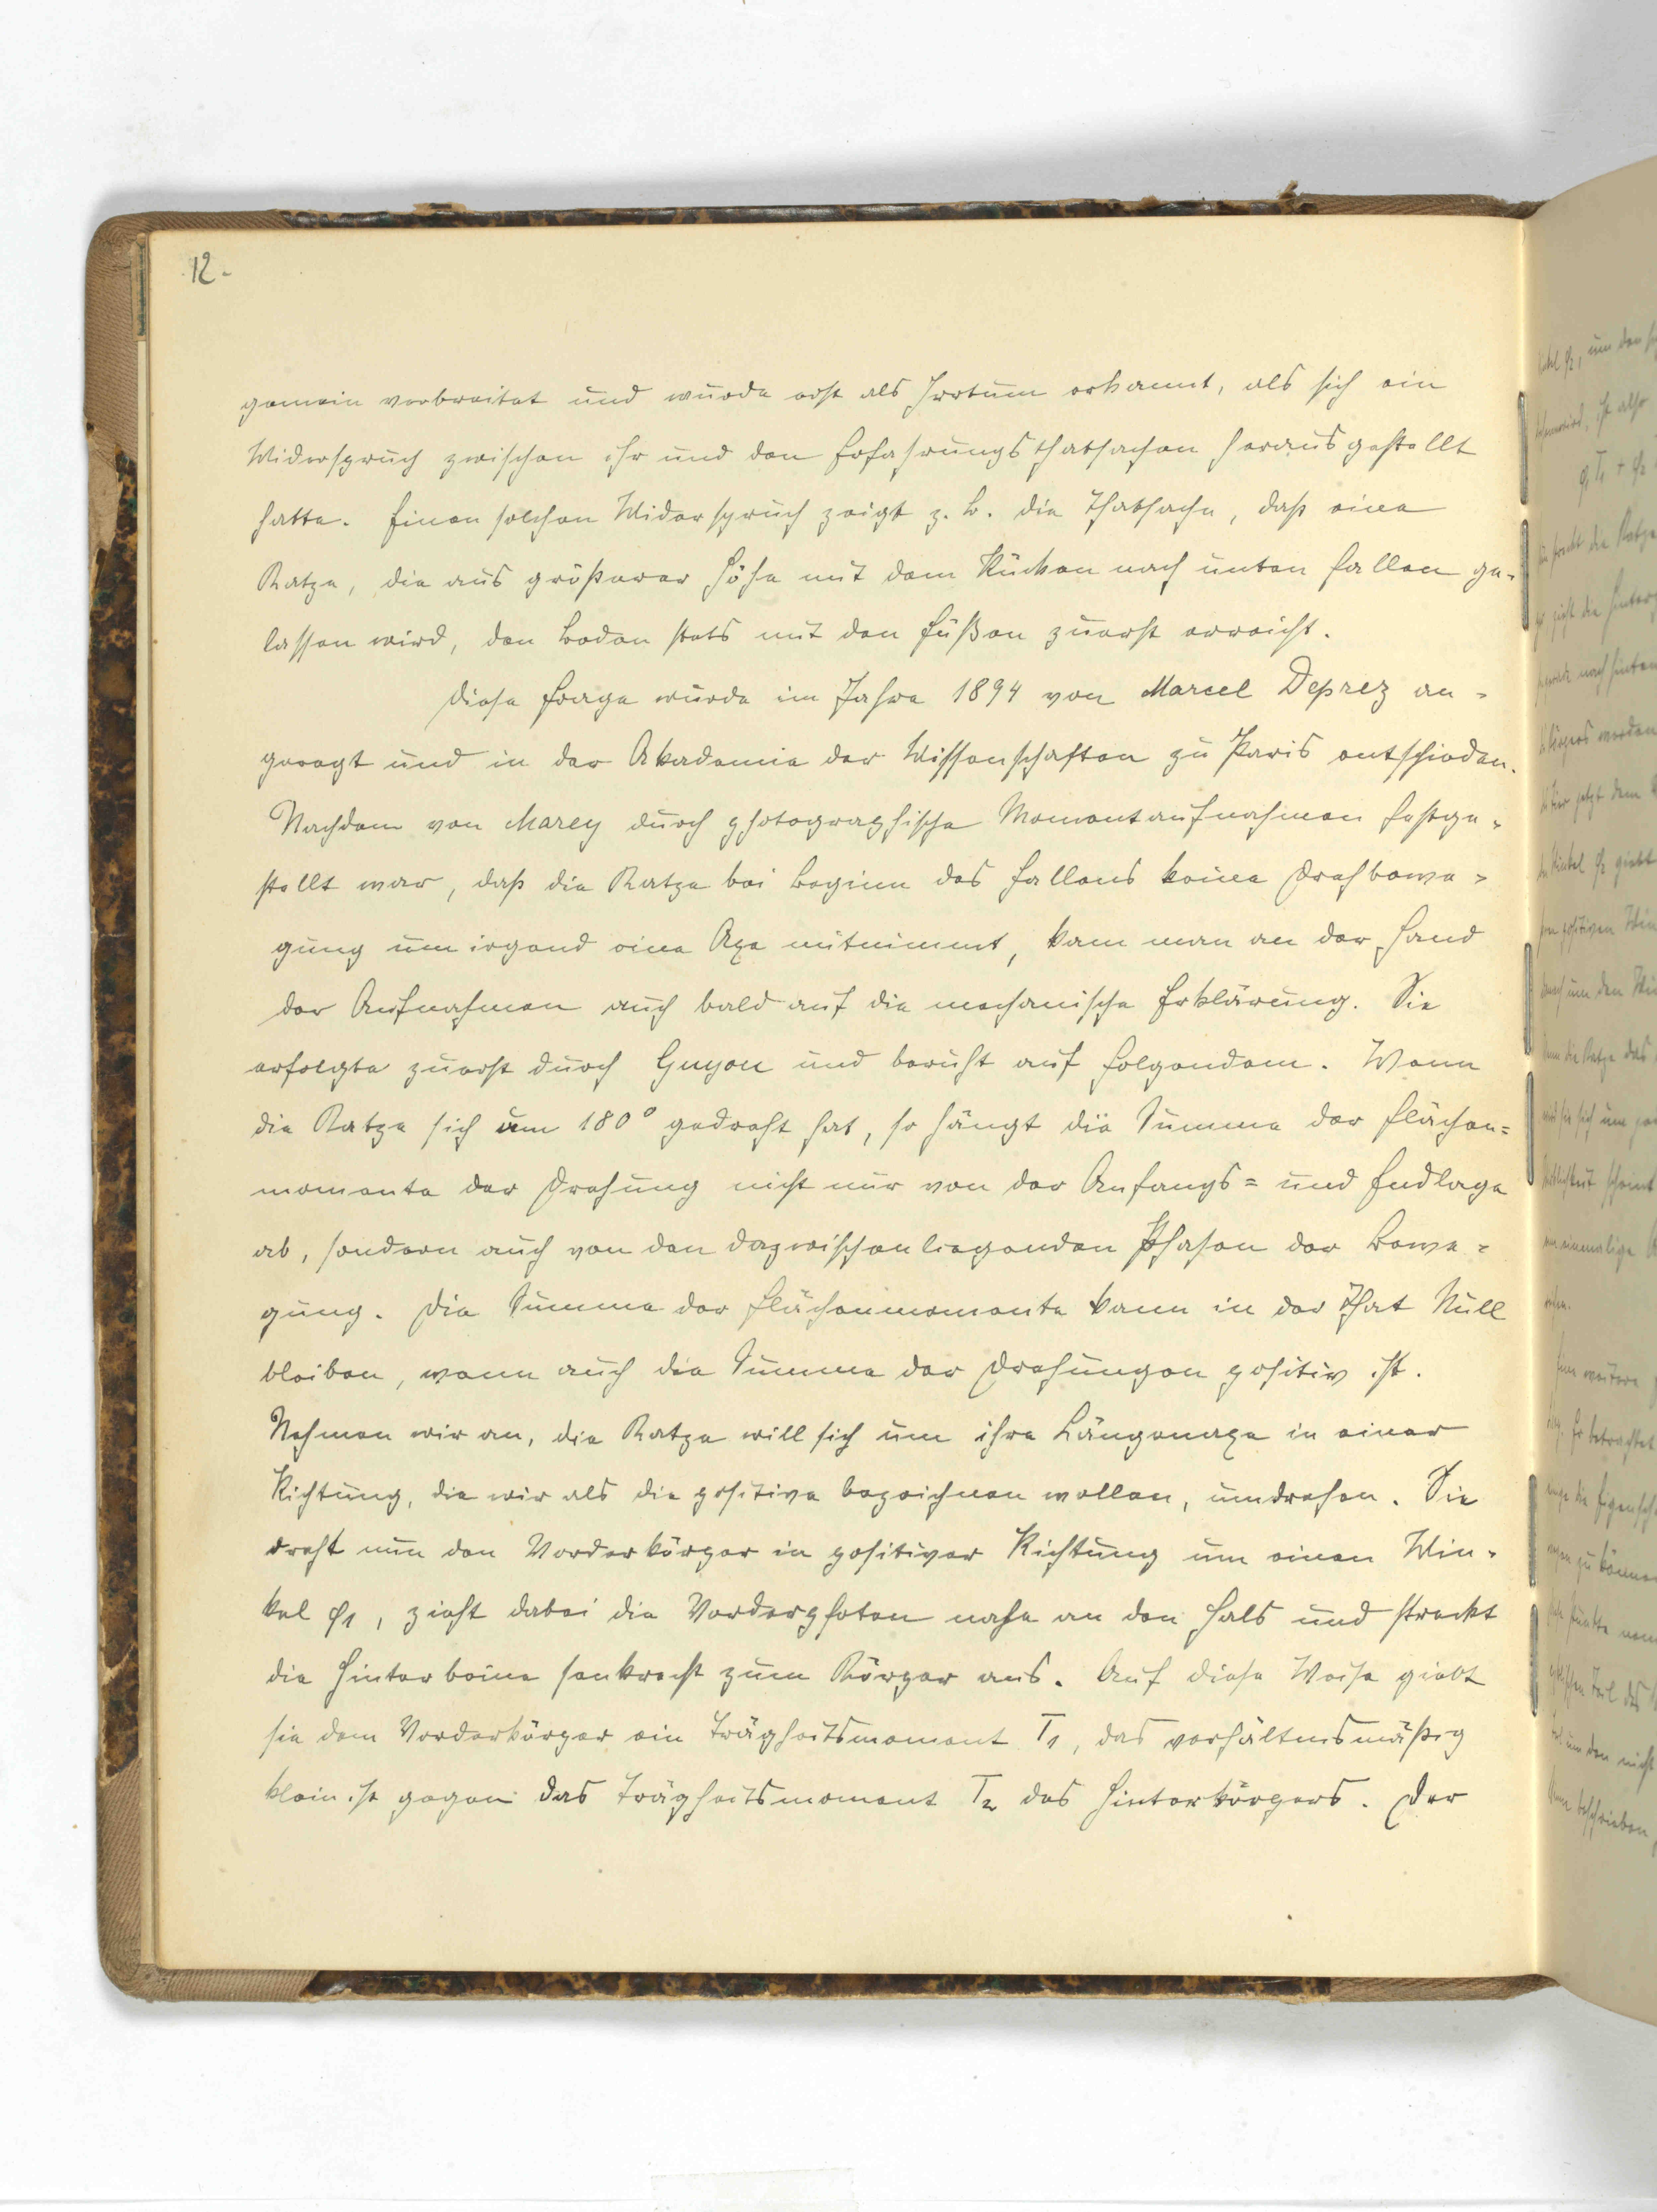 12.
gemein verbreitet und wurde erst als Irrtum erkannt, als sich ein
Widerspruch zwischen ihr und den Erfahrungsthatsachen herausgestellt
hatte. Einen solchen Widerspruch zeigt z. B. die Thatsache, daß eine
Katze, die aus größerer Höhe mit dem Rücken nach unten fallen ge-
lassen wird, den Boden stets mit den Füßen zuerst erreicht.
Diese Frage wurde im Jahre 1894 von Marcel Deprez an-
geregt und in der Akademie der Wissenschaften zu Paris entschieden.
Nachdem von Marey durch photographische Momentaufnahmen festge-
stellt war, daß die Katze bei Beginn des Fallens keine Drehbewe-
gung um irgend eine Axe mitnimmt, kam man an der Hand
der Aufnahmen auch bald auf die mechanische Erklärung. Sie
erfolgte zuerst durch Guyou und beruht auf folgendem. Wenn
die Katze sich um 180° gedreht hat, so hängt die Summe der Flächen=
momente der Drehung nicht nur von der Anfangs= und Endlage
ab, sondern auch von den dazwischenliegenden Phasen der Bewe-
gung. Die Summe der Flächenmomente kann in der That Null
bleiben, wenn auch die Summe der Drehungen positiv ist.
Nehmen wir an, die Katze will sich um ihre Längenaxe in einer
Richtung, die wir als die positive bezeichnen wollen, umdrehen. Sie
dreht nun den Vorderkörper in positiver Richtung um einen Win-
kel φ1, zieht dabei die Vorderpfoten nahe an den Hals und streckt
die Hinterbeine senkrecht zum Körper aus. Auf diese Weise giebt
sie dem Vorderkörper ein Trägheitsmoment T1, das verhältnismäßig
klein ist gegen das Trägheitsmoment T2 des Hinterkörpers. Der